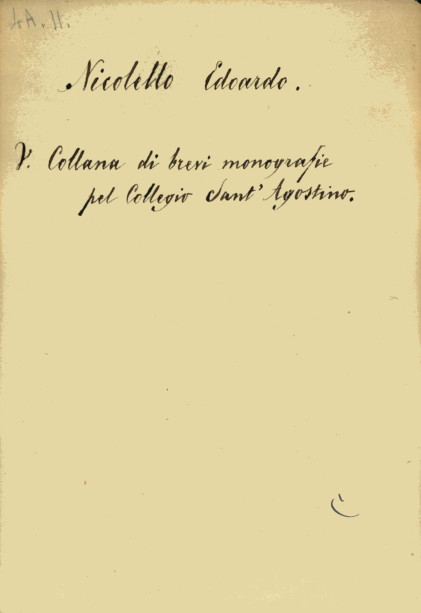 4A.11.
Nicoletto Edoardo.
V. Collana di brevi monografie
pel Collegio Sant' Agostino.